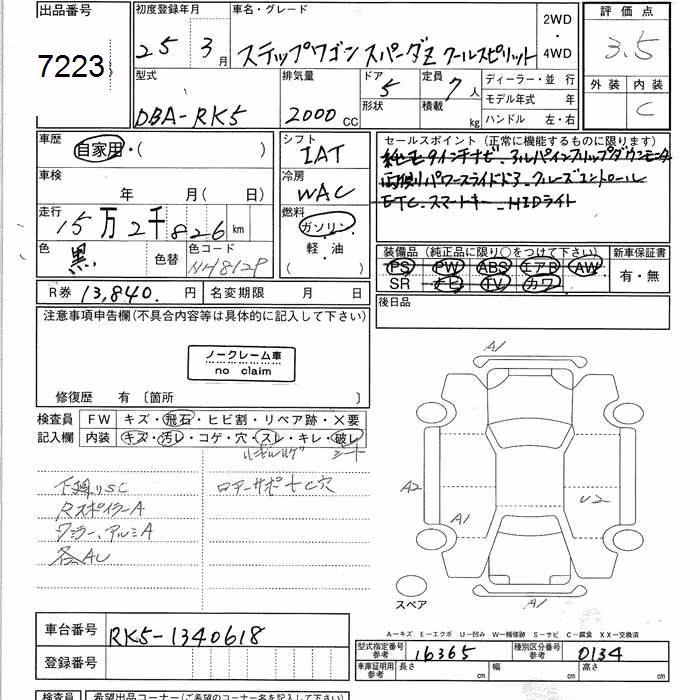 出品番号 初度登録年月 車名・グレード 2WD・4WD 評価点
7223 25年 3月 ステップワゴン スパーダZ クールスピリット 3.5
型式 排気量 ドア 定員 ディーラー・並 行 外装 内装
DBA-RK5 2000CC 5 7人 モデル年式 年 C
形状 積載 kg ハンドル 左・右
車歴 自家用・( ) シフト IAT セールスポイント(正常に機能するものに限ります)
車検 年 月( 日) 冷房 WAC
走行 15万2千826km 燃料 ガソリン ETC.スマートキー.HIDライト
色 黒 色替 色コード NH812P 軽・油 ( ) 装備品(純正品に限り○をつけて下さい) 新車保証書
PS PW ABS エアB AW 有・無
SR ナビ TV カワ
R券 13,840.円 名変期限 月 日 後日品
注意事項申告欄(不具合内容等は具体的に記入して下さい)
ノークレーム車
no claim
修復歴 有 〔箇所 〕
検査員 FW キズ・飛石・ヒビ割・リペア跡・×要
記入欄 内装 キズ・汚レ・コゲ・穴・スレ・キレ・破レ
シート
下廻りSC ロアーサポートC穴
RスポイラーA
ワミラー、アルミA
各AU
A1
A2
U2
A1
A1
スペア
A-キズ E-エクボ U-凹み W-補修跡 S-サビ C-腐食 XX-交換済
車台番号 RK5-1340618 型式指定番号 参考 16365 種別区分番号 参考 0134
登録番号 車庫証明用 参考 長さ 幅 高さ
検査員 希望出品コーナー(ご希望のコーナー名を記入下さい)